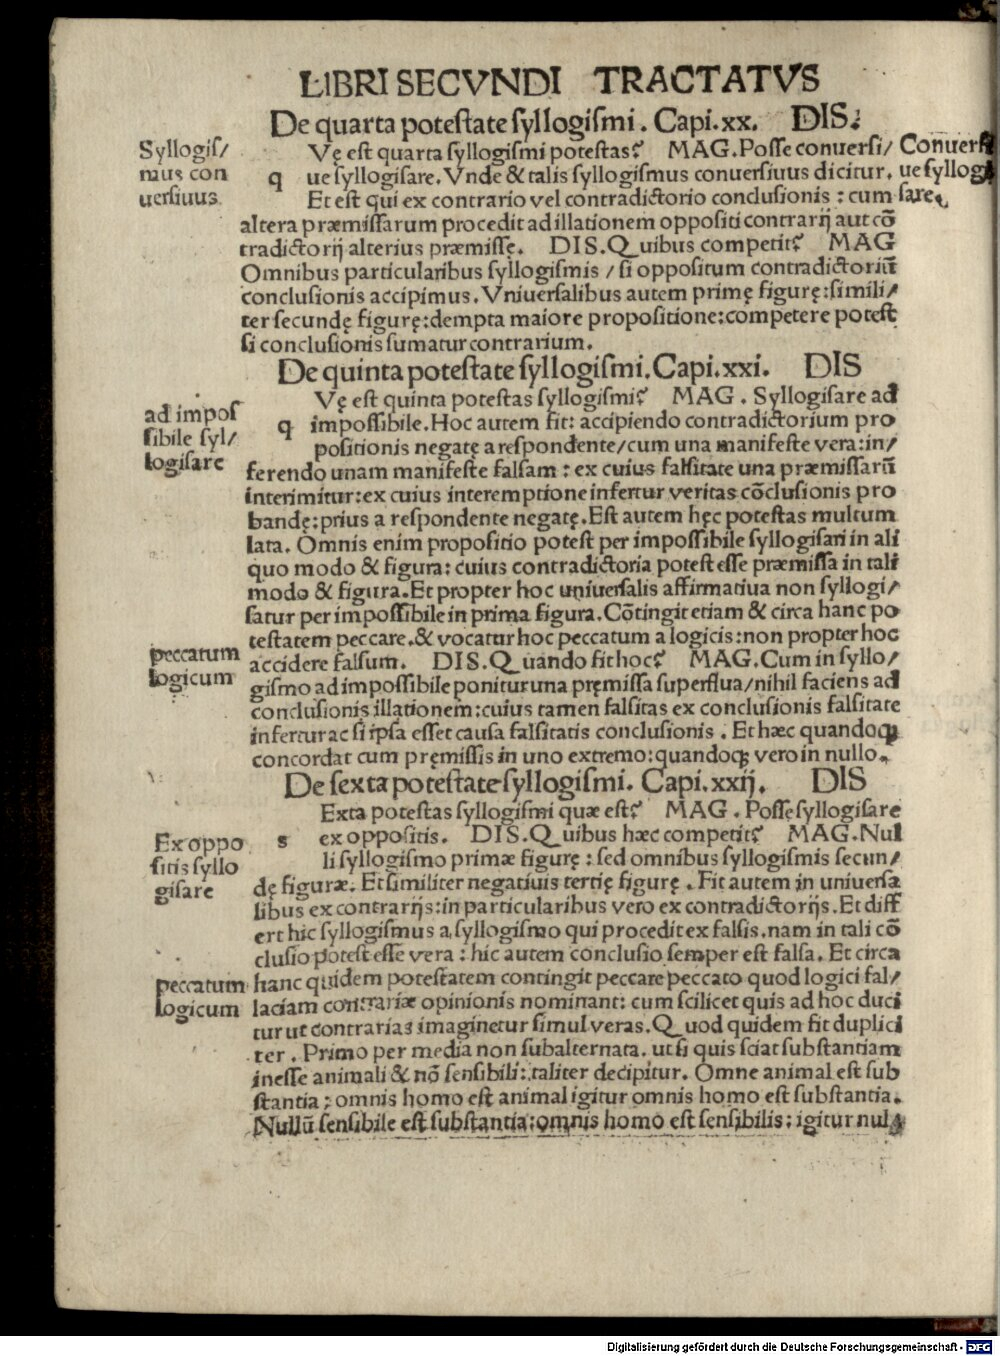 LIBRI SECVNDI TRACTATVS
De quarta potestate syllogismi. Capi.xx. DIS.
Syllogis/
mus con
uersiuus.
q
Vę est quarta syllogismi potestas? MAG.Posse conuersi/
ue syllogisare. Vnde & talis syllogismus conuersiuus dicitur.
Et est qui ex contrario vel contradictorio conclusionis : cum
Conuersi
ue syllogi
sare.
altera præmissarum procedit ad illationem oppositi contrarij aut cō
tradictorij alterius præmissę. DIS.Quibus competit? MAG
Omnibus particularibus syllogismis / si oppositum contradictoriū
conclusionis accipimus. Vniuersalibus autem primę figurę:simili/
ter secundę figurę:dempta maiore propositione:competere potest
si conclusionis sumatur contrarium.
De quinta potestate syllogismi. Capi.xxi. DIS
ad impos
sibile syl/
logisare
q
Vę est quinta potestas syllogismi? MAG . Syllogisare ad
impossibile. Hoc autem fit: accipiendo contradictorium pro
positionis negatę a respondente/cum una manifeste vera:in/
ferendo unam manifeste falsam : ex cuius falsitate una præmissarū
interimitur:ex cuius interemptione infertur veritas cōclusionis pro
bandę:prius a respondente negatę.Est autem hęc potestas multum
lata. Omnis enim propositio potest per impossibile syllogisari in ali
quo modo & figura: cuius contradictoria potest esse præmissa in tali
modo & figura.Et propter hoc uniuersalis affirmatiua non syllogi/
satur per impossibile in prima figura.Cōtingit etiam & circa hanc po
testatem peccare.& vocatur hoc peccatum a logicis:non propter hoc
peccatum
logicum
accidere falsum. DIS.Quando fit hoc? MAG.Cum in syllo/
gismo ad impossibile ponitur una pręmissa superflua/nihil faciens ad
conclusionis illationem:cuius tamen falsitas ex conclusionis falsitate
infertur ac si ipsa esset causa falsitatis conclusionis . Et hæc quandoqꝫ
concordat cum pręmissis in uno extremo:quandoqꝫ vero in nullo.
De sexta potestate syllogismi. Capi.xxij. DIS
Ex oppo
sitis syllo
gisare
s
Exta potestas syllogismi quæ est? MAG . Posse syllogisare
ex oppositis. DIS.Quibus hæc competit? MAG.Nul
li syllogismo primæ figurę : sed omnibus syllogismis secun/
dę figuræ. Et similiter negatiuis tertię figurę . Fit autem in uniuersa
libus ex contrarijs:in particularibus vero ex contradictorijs.Et diff
ert hic syllogismus a syllogismo qui procedit ex falsis.nam in tali cō
clusio potest esse vera : hic autem conclusio semper est falsa. Et circa
peccatum
logicum
hanc quidem potestatem contingit peccare peccato quod logici fal/
laciam contrariæ opinionis nominant: cum scilicet quis ad hoc duci
tur ut contrarias imaginetur simul veras.Quod quidem fit duplici
ter . Primo per media non subalternata. ut si quis sciat substantiam
inesse animali & nō sensibili: taliter decipitur. Omne animal est sub
stantia : omnis homo est animal igitur omnis homo est substantia.
Nullū sensibile est substantia:omnis homo est sensibilis: igitur nul
Digitalisierung gefördert durch die Deutsche Forschungsgemeinschaft - DFG